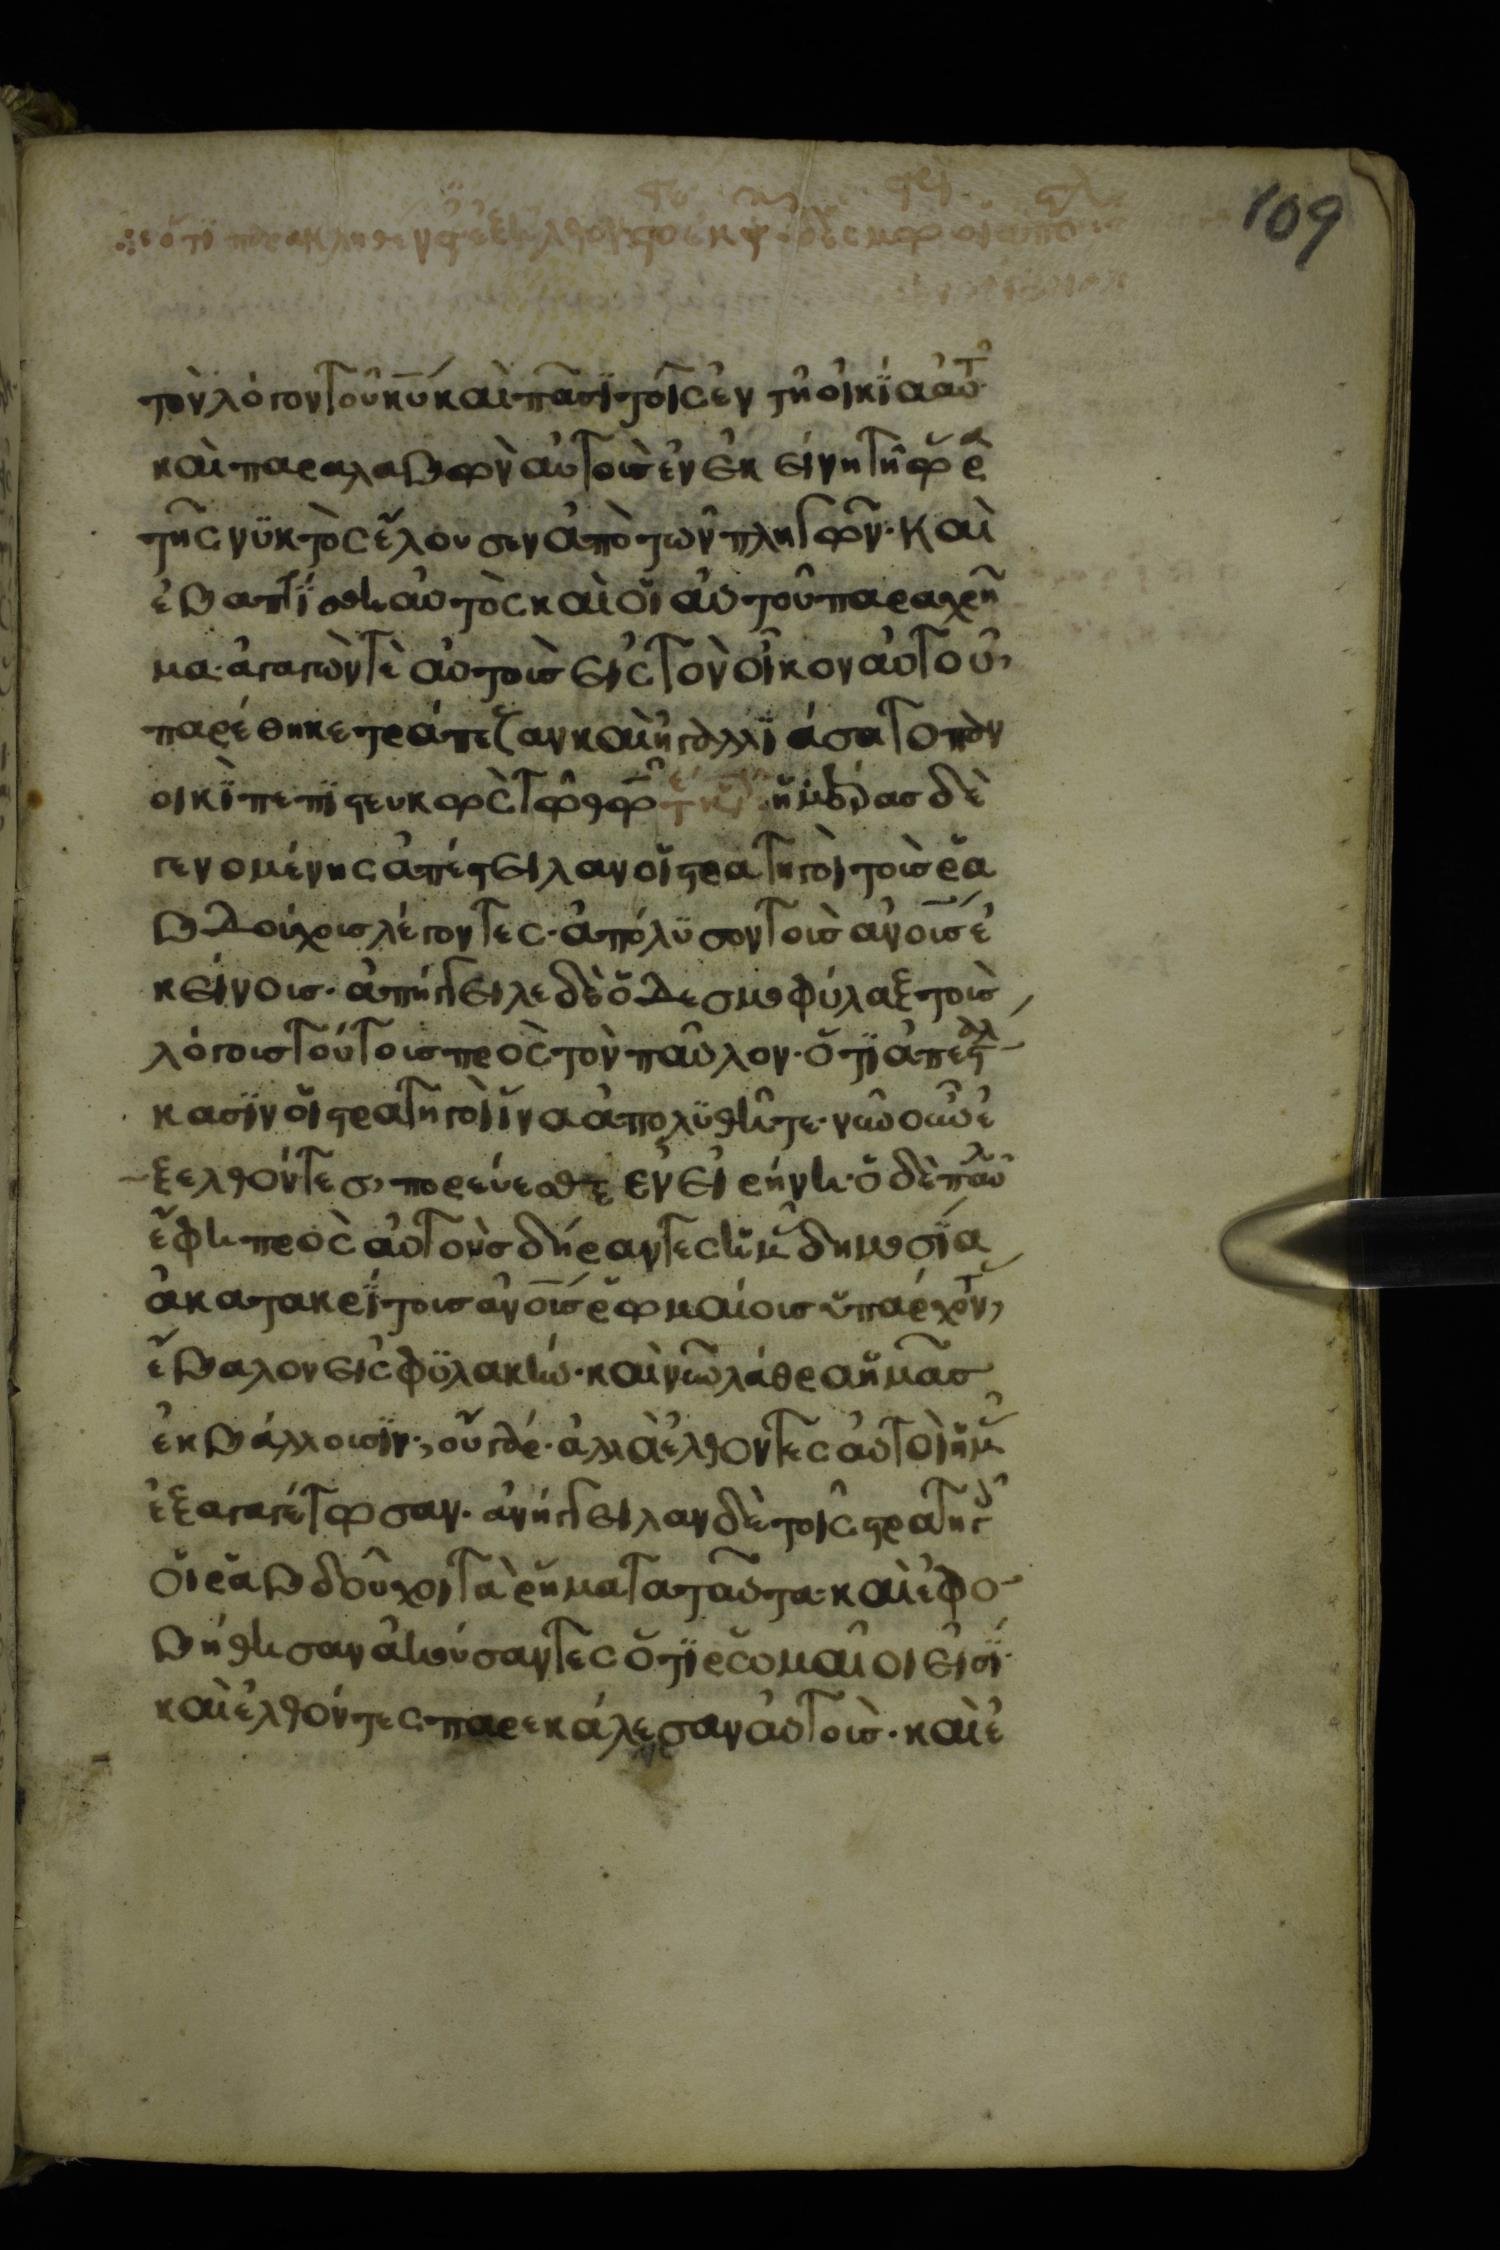 109
τὸν λόγον τοῦ κυ καὶ πᾶσϊ τοῖς ἐν τῇ οἰκίᾳ αὐτ
καὶ παραλαβὼν αὐτοὺς ἐν ἐκείνῃ τῇ ὥρᾳ
τῆς νυκτὸς ἔλουσεν ἀπὸ τῶν πληγῶν· καὶ
ἐβαπτίσθη αὐτὸς καὶ οἱ αὐτοῦ παραχρῆ
μα· ἀγαγών τε αὐτοὺς εἰς τὸν οἶκον αὐτοῦ,
παρέθηκε τράπεζαν καὶ ἠγαλλϊάσατο παν
οικὶ πεπϊστευκὼς τῷ θῶ ἡμέρας δὲ
γενομένης ἀπέστειλαν οἱ στρατηγοὶ τοὺς ῥα
βδούχους λέγοντες· ἀπόλϋσον τοὺς ἀνους ἐ
κείνους· ἀπήγγειλε δὲ ὁ δεσμοφύλαξ τοὺς
λόγους τούτους πρὸς τὸν παῦλον· ὅτϊ ἀπεστάλ
κασϊν οἱ στρατηγοὶ ἵνα ἀπολϋθῆτε· νῦν οὖν ἐ
ξελθόντες, πορεύεσθε ἐν εἰρήνῃ· ὁ δὲ παῦλ
ἔφη πρὸς αὐτοὺς δήραντες ἡμ δημοσίᾳ
ἀκατακρίτους ἀνους ῥωμαίους ὑπάρχοντ,
ἔβαλον εἰς φϋλακήν· καὶ νῦν λάθρα ἡμᾶς
ἐκβάλλουσϊν·, οὐ γάρ· ἀλλὰ ἐλθόντες αὐτοὶ ἡμ
ἐξαγαγέτωσαν· ἀνήγγειλαν δὲ τοῖς στρατηγ
οἱ ῥαβδοῦχοι τὰ ῥήματα ταῦτα· καὶ ἐφο
βήθησαν ἀκούσαντες ὅτϊ ῥωμαῖοι εἰσϊ·
καὶ ἐλθόντες παρεκάλεσαν αὐτοὺς· καὶ ἐ